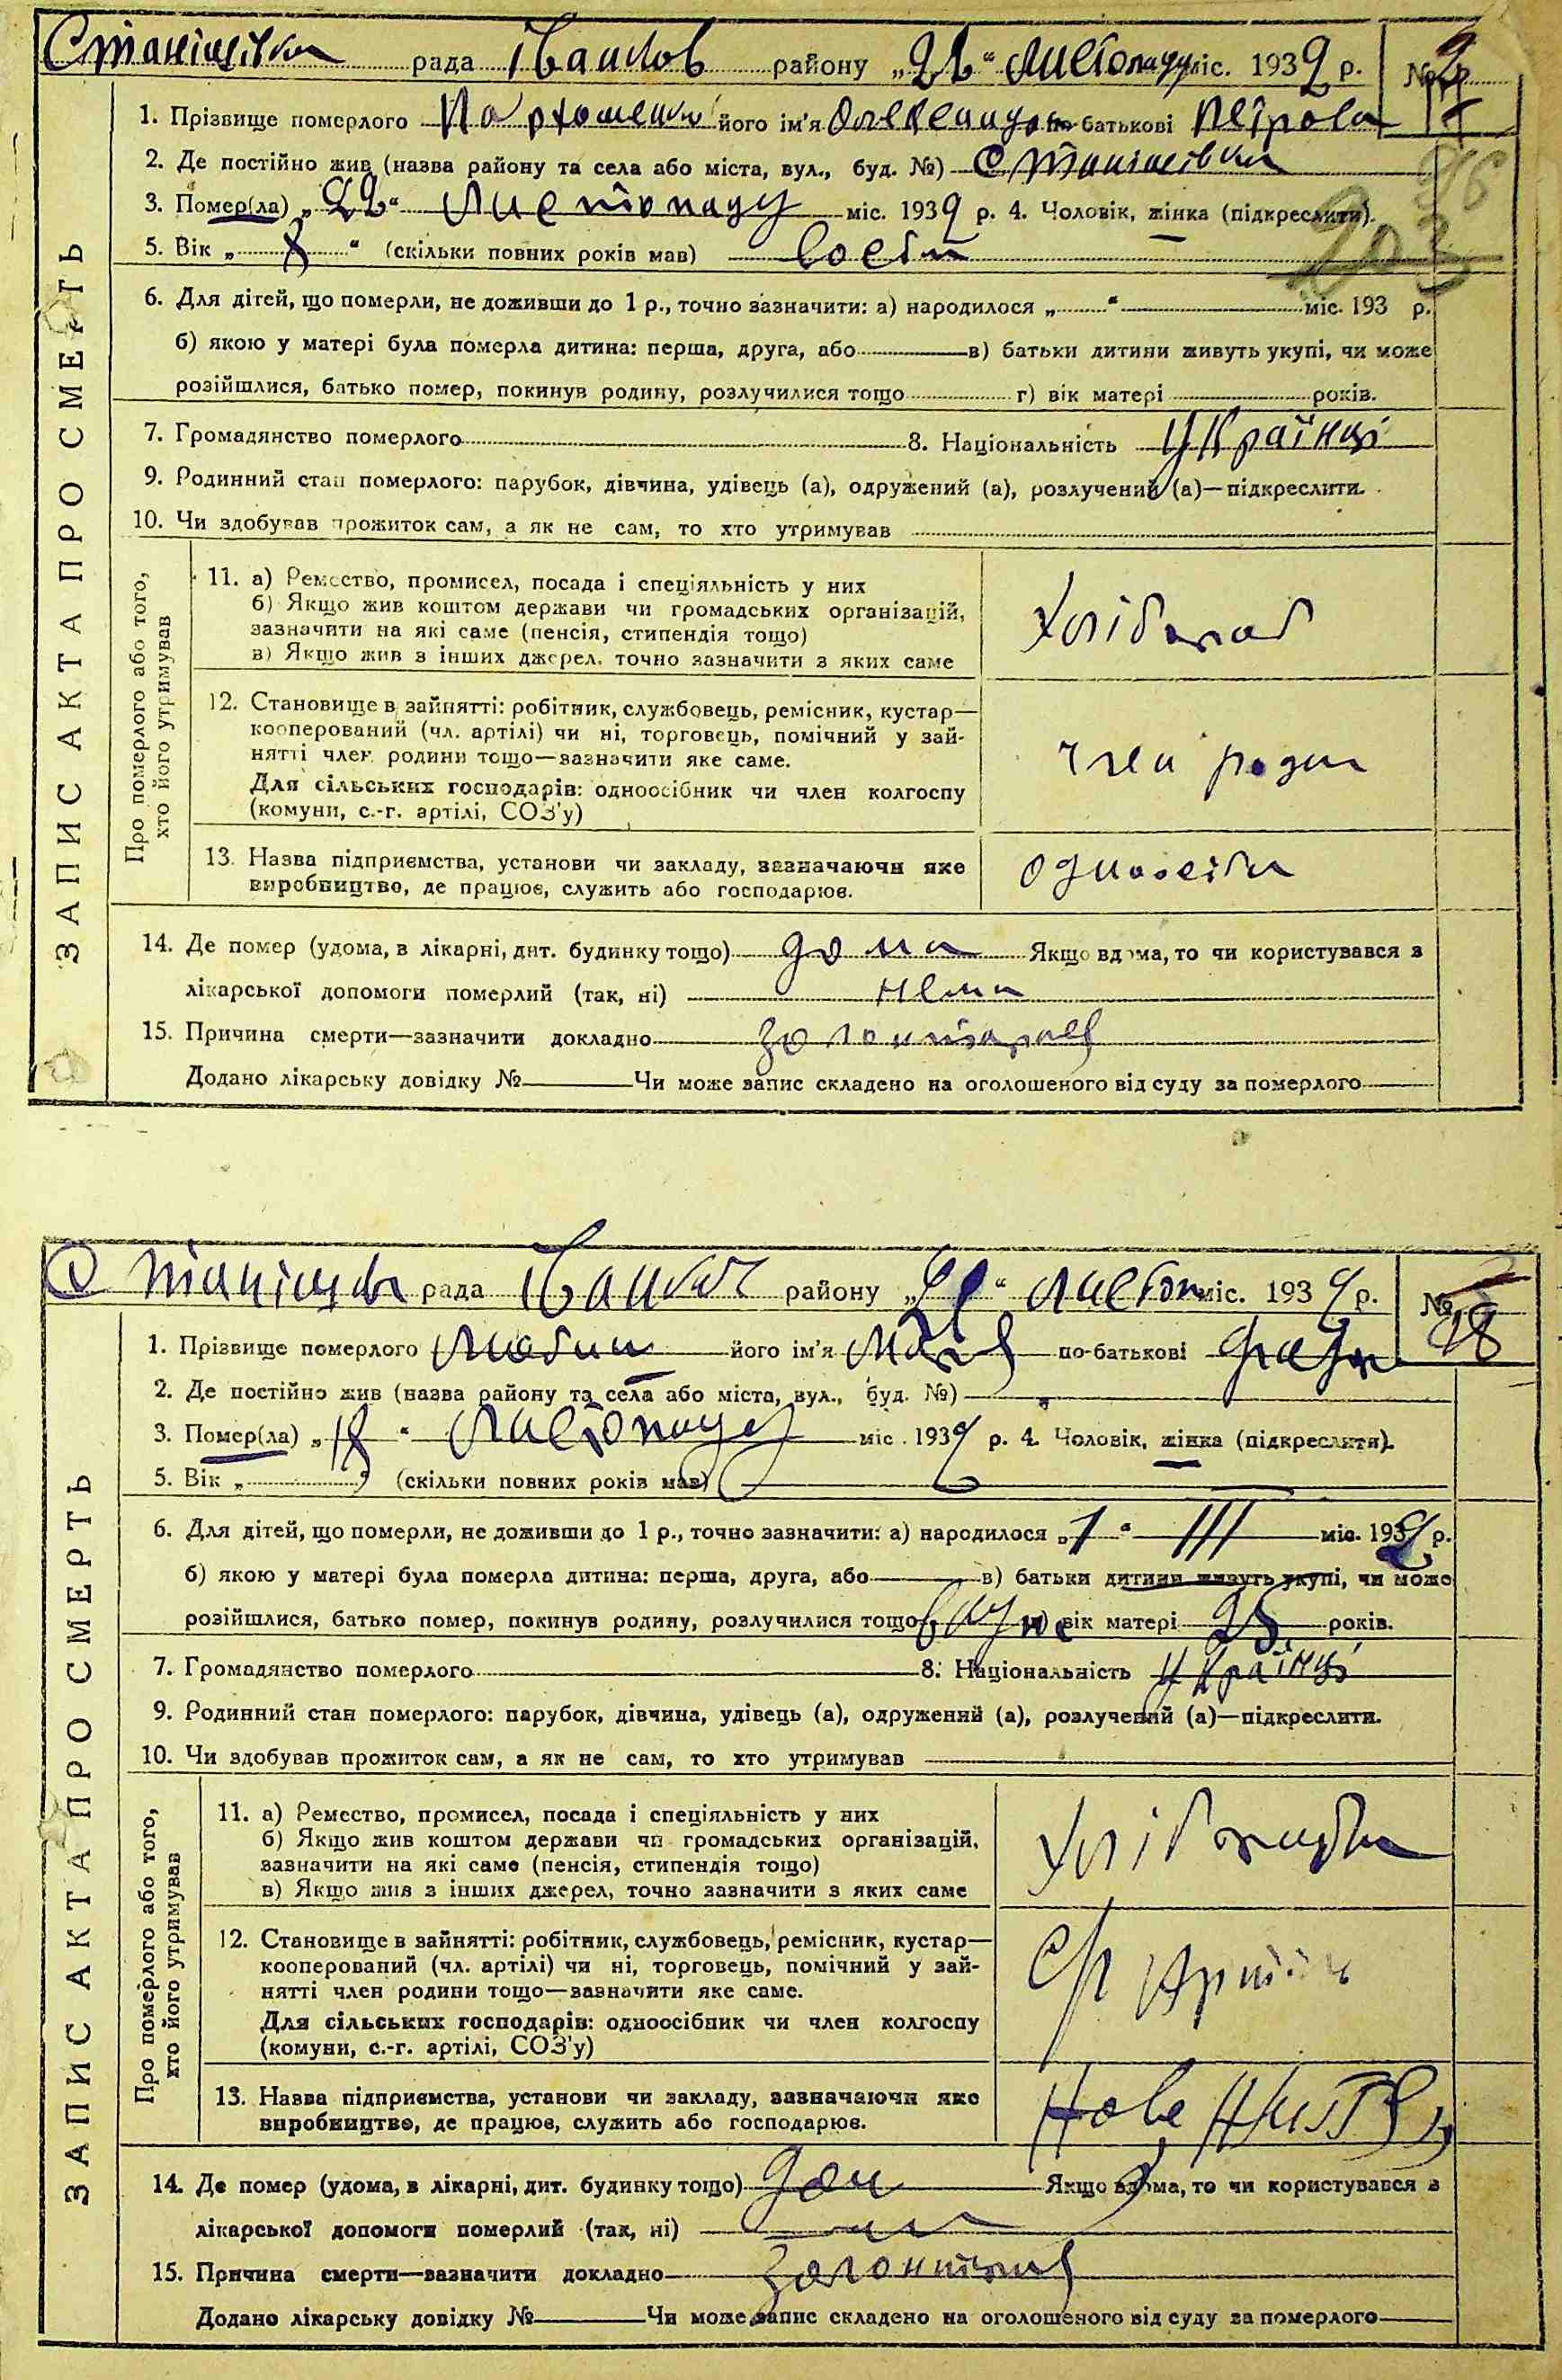 Станішівка рада Іванков району „22“ листопаду міс. 1932 р. №
1. Прізвище померлого Пархоменко його ім'я Олександра по-батькові Петрова
2. Де постійно жив (назва району та села або міста, вул., буд. №) Станішівка
3. Помер(ла) „22“ листопаду міс. 1932 р. 4. Чоловік, жінка (підкреслити).
203
5. Вік „8“ (скільки повних років мав)
6. Для дітей, що померли, не доживши до 1 р., точно зазначити: а) народилося „ “ міс. 193 р.
б) якою у матері була померла дитина: перша, друга, або в) батьки дитини живуть укупі, чи може
розійшлися, батько помер, покинув родину, розлучилися тощо г) вік матері років.
7. Громадянство померлого 8. Національність Українці
9. Родинний стан померлого: парубок, дівчина, удівець (а), одружений (а), розлучений (а)—підкреслити.
10. Чи здобував прожиток сам, а як не сам, то хто утримував
ЗАПИС АКТА ПРО СМЕРТЬ
Про померлого або того,
хто його утримував
11. а) Ремество, промисел, посада і спеціяльність у них
б) Якщо жив коштом держави чи громадських організацій,
зазначити на які саме (пенсія, стипендія тощо)
в) Якщо жив з інших джерел, точно зазначити з яких саме
Хлібороб
12. Становище в зайнятті: робітник, службовець, ремісник, кустар—
кооперований (чл. артілі) чи ні, торговець, помічний у зай-
нятті член родини тощо—зазначити яке саме.
Для сільських господарів: одноосібник чи член колгоспу
(комуни, с.-г. артілі, СОЗ'у)
член родин
13. Назва підприємства, установи чи закладу, зазначаючи яке
виробництво, де працює, служить або господарює.
одноосібн
14. Де помер (удома, в лікарні, дит. будинку тощо) дома Якщо вдома, то чи користувався з
лікарської допомоги померлий (так, ні) нема
15. Причина смерти—зазначити докладно
Додано лікарську довідку № Чи може запис складено на оголошеного від суду за померлого
рада району міс. 193 р. №
18
1. Прізвище померлого його ім'я по-батькові
2. Де постійно жив (назва району та села або міста, вул., буд. №)
3. Помер(ла) „18“ листопаду міс. 1932 р. 4. Чоловік, жінка (підкреслити).
5. Вік „ “ (скільки повних років мав)
6. Для дітей, що померли, не доживши до 1 р., точно зазначити: а) народилося „1“ III міс. 1932 р.
б) якою у матері була померла дитина: перша, друга, або в) батьки дитини живуть укупі, чи може
розійшлися, батько помер, покинув родину, розлучилися тощо вкупе г) вік матері 25 років.
7. Громадянство померлого 8. Національність Українці
9. Родинний стан померлого: парубок, дівчина, удівець (а), одружений (а), розлучений (а)—підкреслити.
10. Чи здобував прожиток сам, а як не сам, то хто утримував
ЗАПИС АКТА ПРО СМЕРТЬ
Про померлого або того,
хто його утримував
11. а) Ремество, промисел, посада і спеціяльність у них
б) Якщо жив коштом держави чи громадських організацій,
зазначити на які саме (пенсія, стипендія тощо)
в) Якщо жив з інших джерел, точно зазначити з яких саме
12. Становище в зайнятті: робітник, службовець, ремісник, кустар—
кооперований (чл. артілі) чи ні, торговець, помічний у зай-
нятті член родини тощо—зазначити яке саме.
Для сільських господарів: одноосібник чи член колгоспу
(комуни, с.-г. артілі, СОЗ'у)
13. Назва підприємства, установи чи закладу, зазначаючи яке
виробництво, де працює, служить або господарює.
Нове Життя
14. Де помер (удома, в лікарні, дит. будинку тощо) дом Якщо вдома, то чи користувався з
лікарської допомоги померлий (так, ні)
15. Причина смерти—зазначити докладно
Додано лікарську довідку № Чи може запис складено на оголошеного від суду за померлого